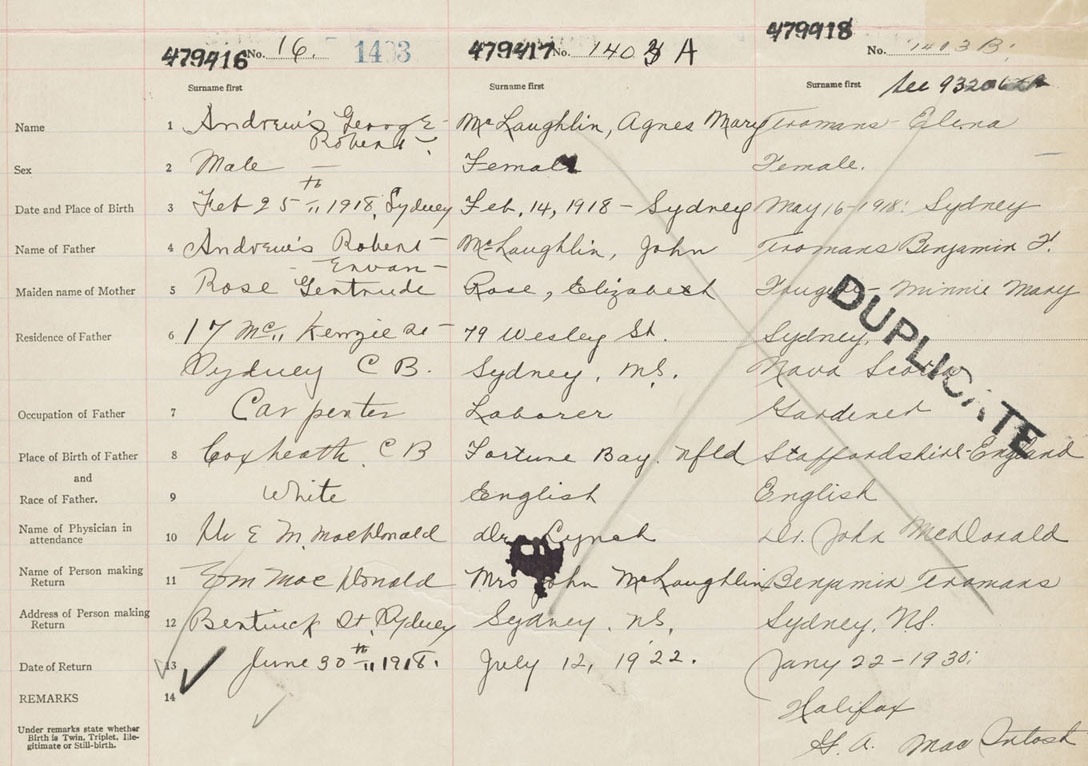 479416 No. 16. 1403 479417 No. 1403 A 479418 No. 1403 B.
Surname first Surname first Surname first See 932062A
Name 1 Andrews George McLaughlin, Agnes Mary Tromans - Elena
Robert
Sex 2 Male Female Female.
Date and Place of Birth 3 Feb 25th 1918, Sydney Feb, 14, 1918 - Sydney May 16 - 1918: Sydney
Name of Father 4 Andrews Robert McLaughlin, John Tromans Benjamin F.
Maiden name of Mother 5 Rose Gertrude Rose, Elizabeth Minnie Mary
Residence of Father 6 17 Mc Kenzie St 79 Wesley St. Sydney,
Sydney C B. Sydney, N.S. Nova Scotia
DUPLICATE
Occupation of Father 7 Carpenter Laborer Gardener
Place of Birth of Father 8 Coxheath, C B Fortune Bay. Nfld Staffordshire - England
and
Race of Father. 9 White English English
Name of Physician in attendance 10 Dr E M. MacDonald Dr. Lynch Dr. John McDonald
Name of Person making Return 11 E M MacDonald Mrs John McLaughlin Benjamin Tromans
Address of Person making Return 12 Bentinck St, Sydney Sydney, N.S. Sydney, N.S.
Date of Return 13 June 30th 1918. July 12, 1922. Jany 22 - 1930:
REMARKS 14 Halifax
Under remarks state whether
Birth is Twin, Triplet, Ille-
gitimate or Still-birth.
G. A. MacIntosh